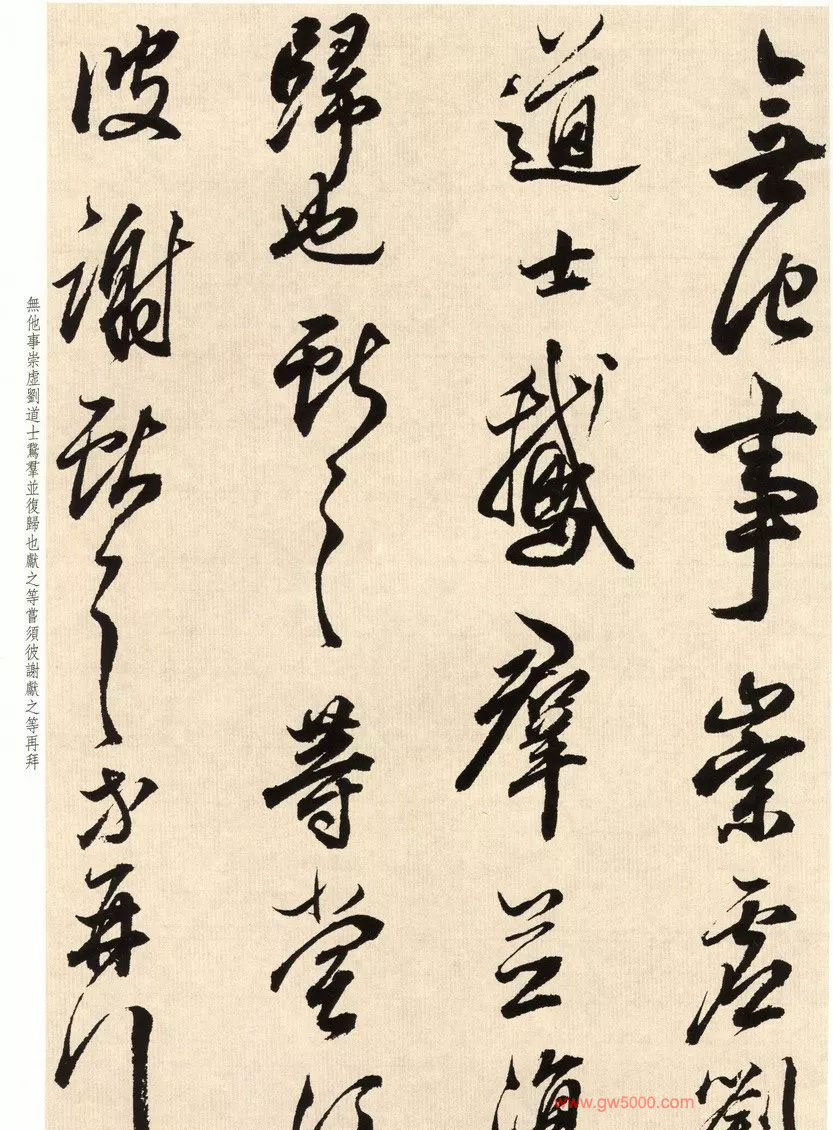 無他事崇虛劉
道士鵝群並復
歸也獻之等當須
彼謝獻之等再拜
無他事崇虛劉道士鵞羣並復歸也獻之等當須彼謝獻之等再拜
www.gw5000.com